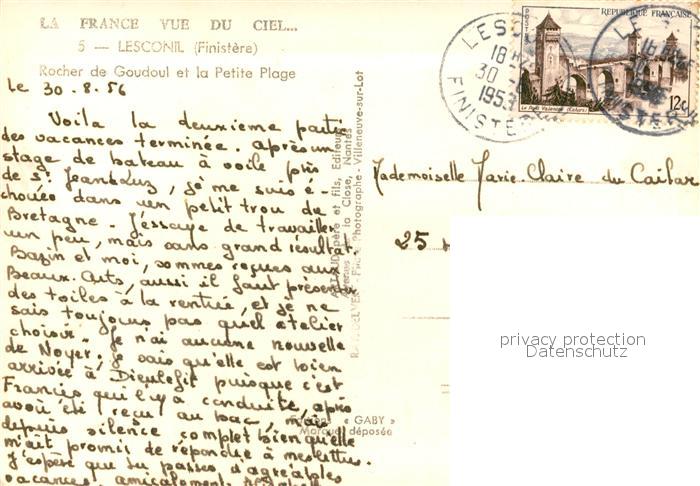 LA FRANCE VUE DU CIEL...
5 — LESCONIL (Finistère)
Rocher de Goudoul et la Petite Plage
le 30.8.56
Voila la deuxième partie
des vacances terminée. Après un
stage de bateau à voile près
de St Jean de Luz, je me suis é-
chouée dans un petit trou de
Bretagne. J'essaye de travailler
un peu, mais sans grand résultat.
Bazin et moi, sommes reçues aux
Beaux. Arts, aussi il faut présenter
des toiles à la rentrée, et je ne
sais toujours pas quel atelier
choisir. Je n'ai aucune nouvelle
de Noyer, je sais qu'elle est bien
arrivée à Dieulefit puisque c'est
Francis qui l'y a conduite, après
avoir été reçu au bac, mais
depuis silence complet bien qu'elle
m'ait promis de répondre à mes lettres.
J'espère que tu passes d'agréables
vacances, amicalement
père et fils, Editeurs
la Close, Nantes
Photographe - Villeneuve-sur-Lot
« GABY »
Marque déposée
REPUBLIQUE FRANÇAISE
Le Pont Valentré (Cahors)
12f
LESCONIL
18H
30
FINISTERE
Mademoiselle Marie-Claire du Cailar
25
privacy protection
Datenschutz